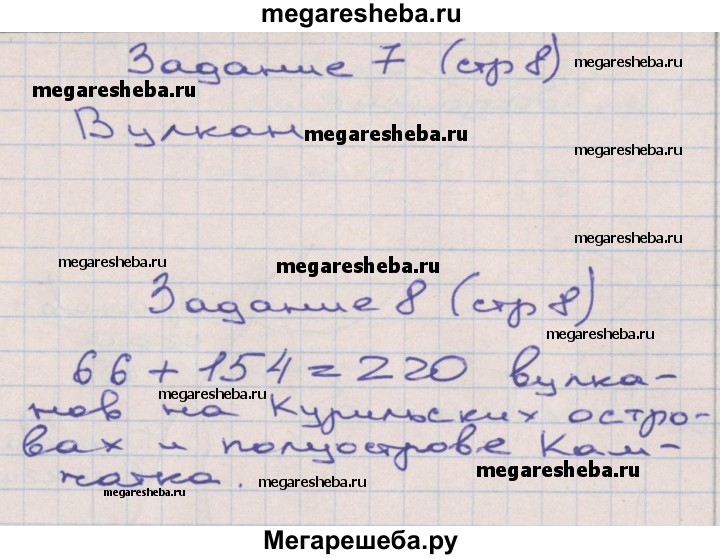 megaresheba.ru
Задание 7 (стр 8) megaresheba.ru
megaresheba.ru
Вулкан megaresheba.ru
megaresheba.ru
megaresheba.ru
megaresheba.ru megaresheba.ru
Задание 8 (стр 8)
megaresheba.ru
66 + 154 = 220 вулка-
megaresheba.ru megaresheba.ru
нов на Курильских остро-
вах и полуострове Кам-
megaresheba.ru
чатка. megaresheba.ru
megaresheba.ru
Мегарешеба.ру